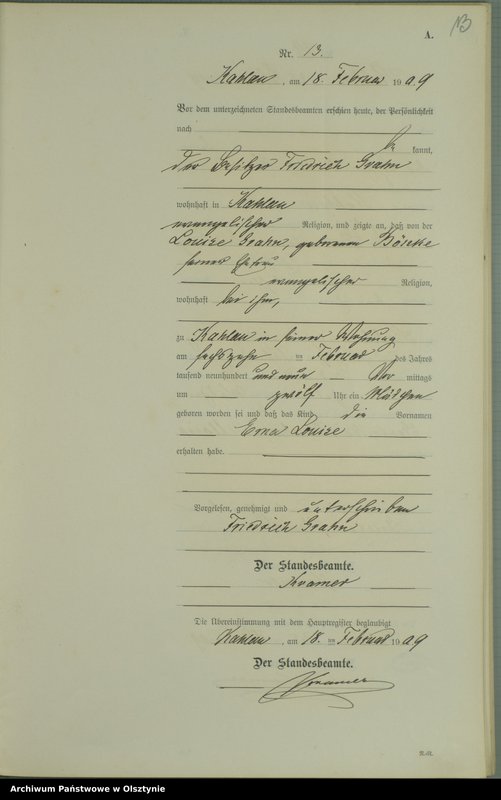 A.
13
Nr. 13.
Kahlau, am 18. Februar 1909
Vor dem unterzeichneten Standesbeamten erschien heute, der Persönlichkeit
nach
be kannt,
der Besitzer Friedrich Grahn
wohnhaft in Kahlau
evangelischer Religion, und zeigte an, daß von der
Louise Grahn, geborenen
seiner Ehefrau
evangelischer Religion,
wohnhaft bei ihm,
zu Kahlau in seiner Wohnung
am sechszehn ten Februar des Jahres
tausend neunhundert und neun Vor mittags
um zwölf Uhr ein Mädchen
geboren worden sei und daß das Kind die Vornamen
Erna Louise
erhalten habe.
Vorgelesen, genehmigt und unterschrieben
Friedrich Grahn
Der Standesbeamte.
Kramer
Die Übereinstimmung mit dem Hauptregister beglaubigt
Kahlau, am 18. ten Februar 1909
Der Standesbeamte.
Kramer
Archiwum Państwowe w Olsztynie